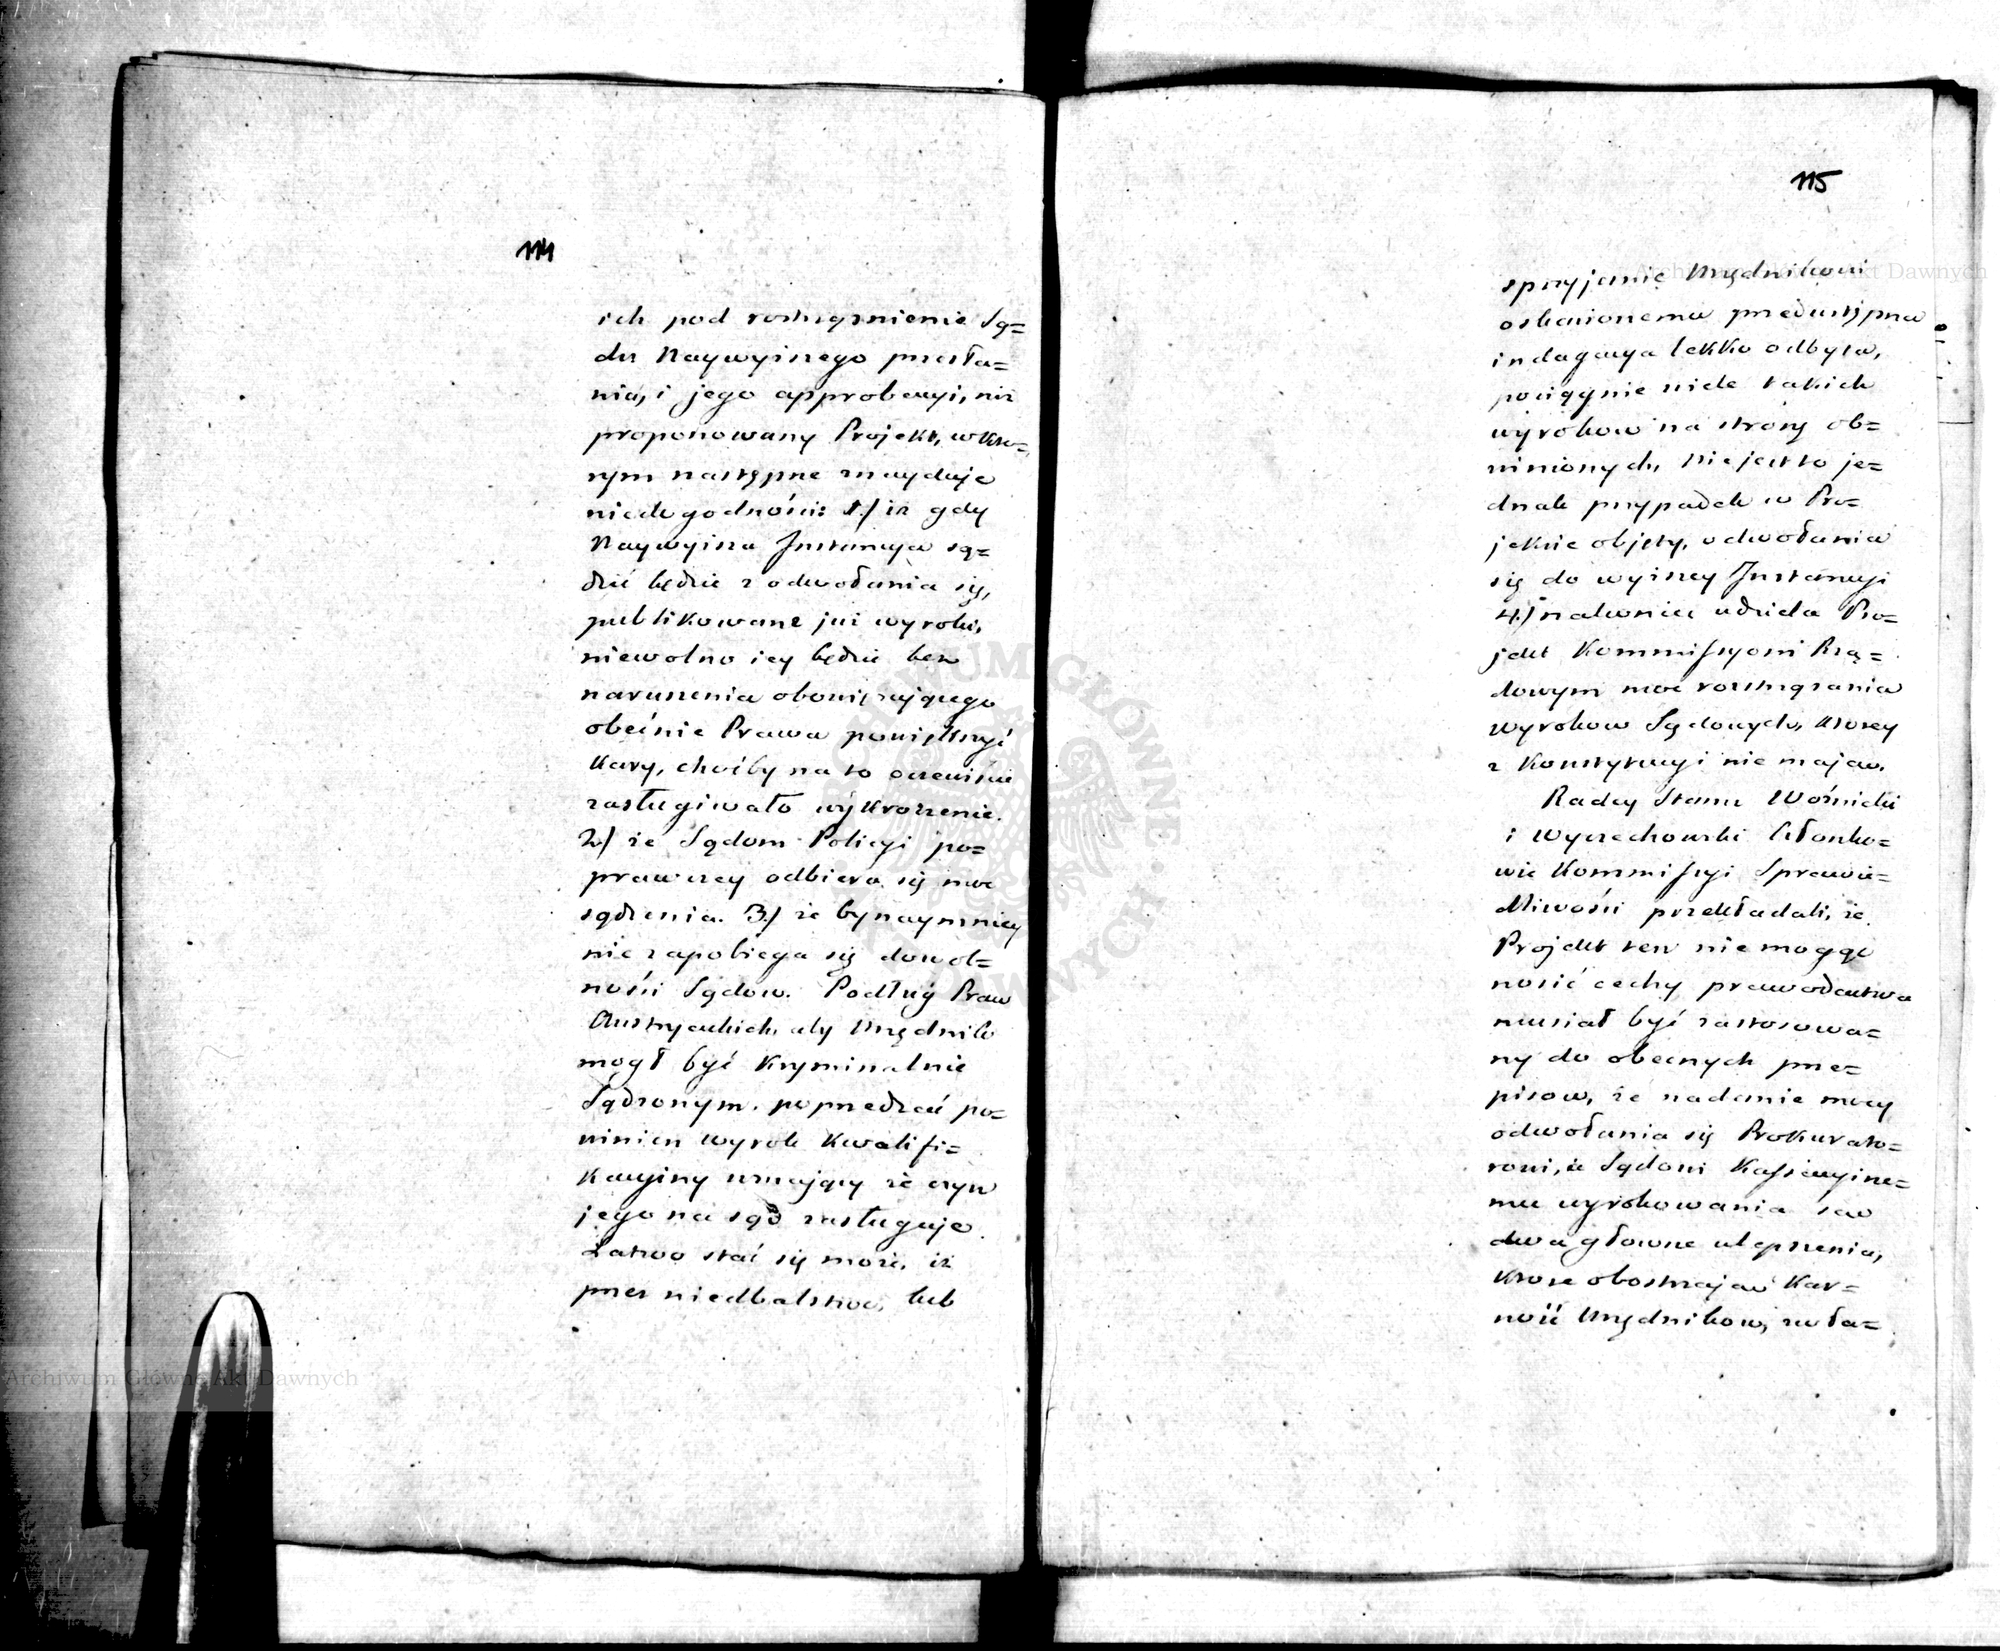 114
ich pod rozstrzygnienie Są=
du Naywyższego przesła=
nia, i jego approbacyi, niż
proponowany Projekt, w któ=
rym następne znayduje
niedogodności: 1.) iż gdy
Naywyższa Instancya są=
dzić będzie z odwołania się,
publikowane już wyroki,
niewolno iey będzie bez
naruszenia obowiązującego
obecnie Prawa powiększyć
Kary, choćby na to oczewiście
zasługiwało wykroczenie.
2.) że Sądom Policyi po=
prawczey odbiera się moc
sądzenia. 3.) że bynaymniey
nie zapobiega się dowol=
ności Sądow. Podług Praw
Austryackich, aby Urzędnik
mogł być Kryminalnie
Sądzonym, poprzedzać po=
winien wyrok Kwalifi=
kacyiny uznający że czyn
jego na sąd zasługuje.
Łatwo stać się może, iż
przez niedbalstwo, lub
115
sprzyjanie Urzędnikowi
oskarżonemu przedwstępna
indagacya lekko odbyta,
pociągnie wiele takich
wyrokow na stronę ob=
winionych, Nie jest to je=
dnak przypadek w Pro=
jekcie objęty, odwołania
się do wyższey Instancyi
4.) nakoniec udziela Pro=
jekt Kommissyom Rzą=
dowym moc rozstrzygania
wyrokow Sądowych, ktorey
z Konstytucyi nie mają.
Radcy Stanu Woźnicki
i Wyczechowski Członko=
wie Kommissyi Sprawie=
dliwości przekładali, że
Projekt ten nie mogąc
nosić cechy prawodawstwa
musiał być zastosowa=
ny do obecnych prze=
pisow, że nadanie mocy
odwołania się Prokurato=
rowi, a Sądowi Kassacyine=
mu wyrokowania są
dwa głowne ulepszenia,
ktore obostrzają Kar=
ność Urzędnikow, zwła=
Archiwum Główne Akt Dawnych
Archiwum Główne Akt Dawnych
ARCHIWUM GŁÓWNE AKT DAWNYCH